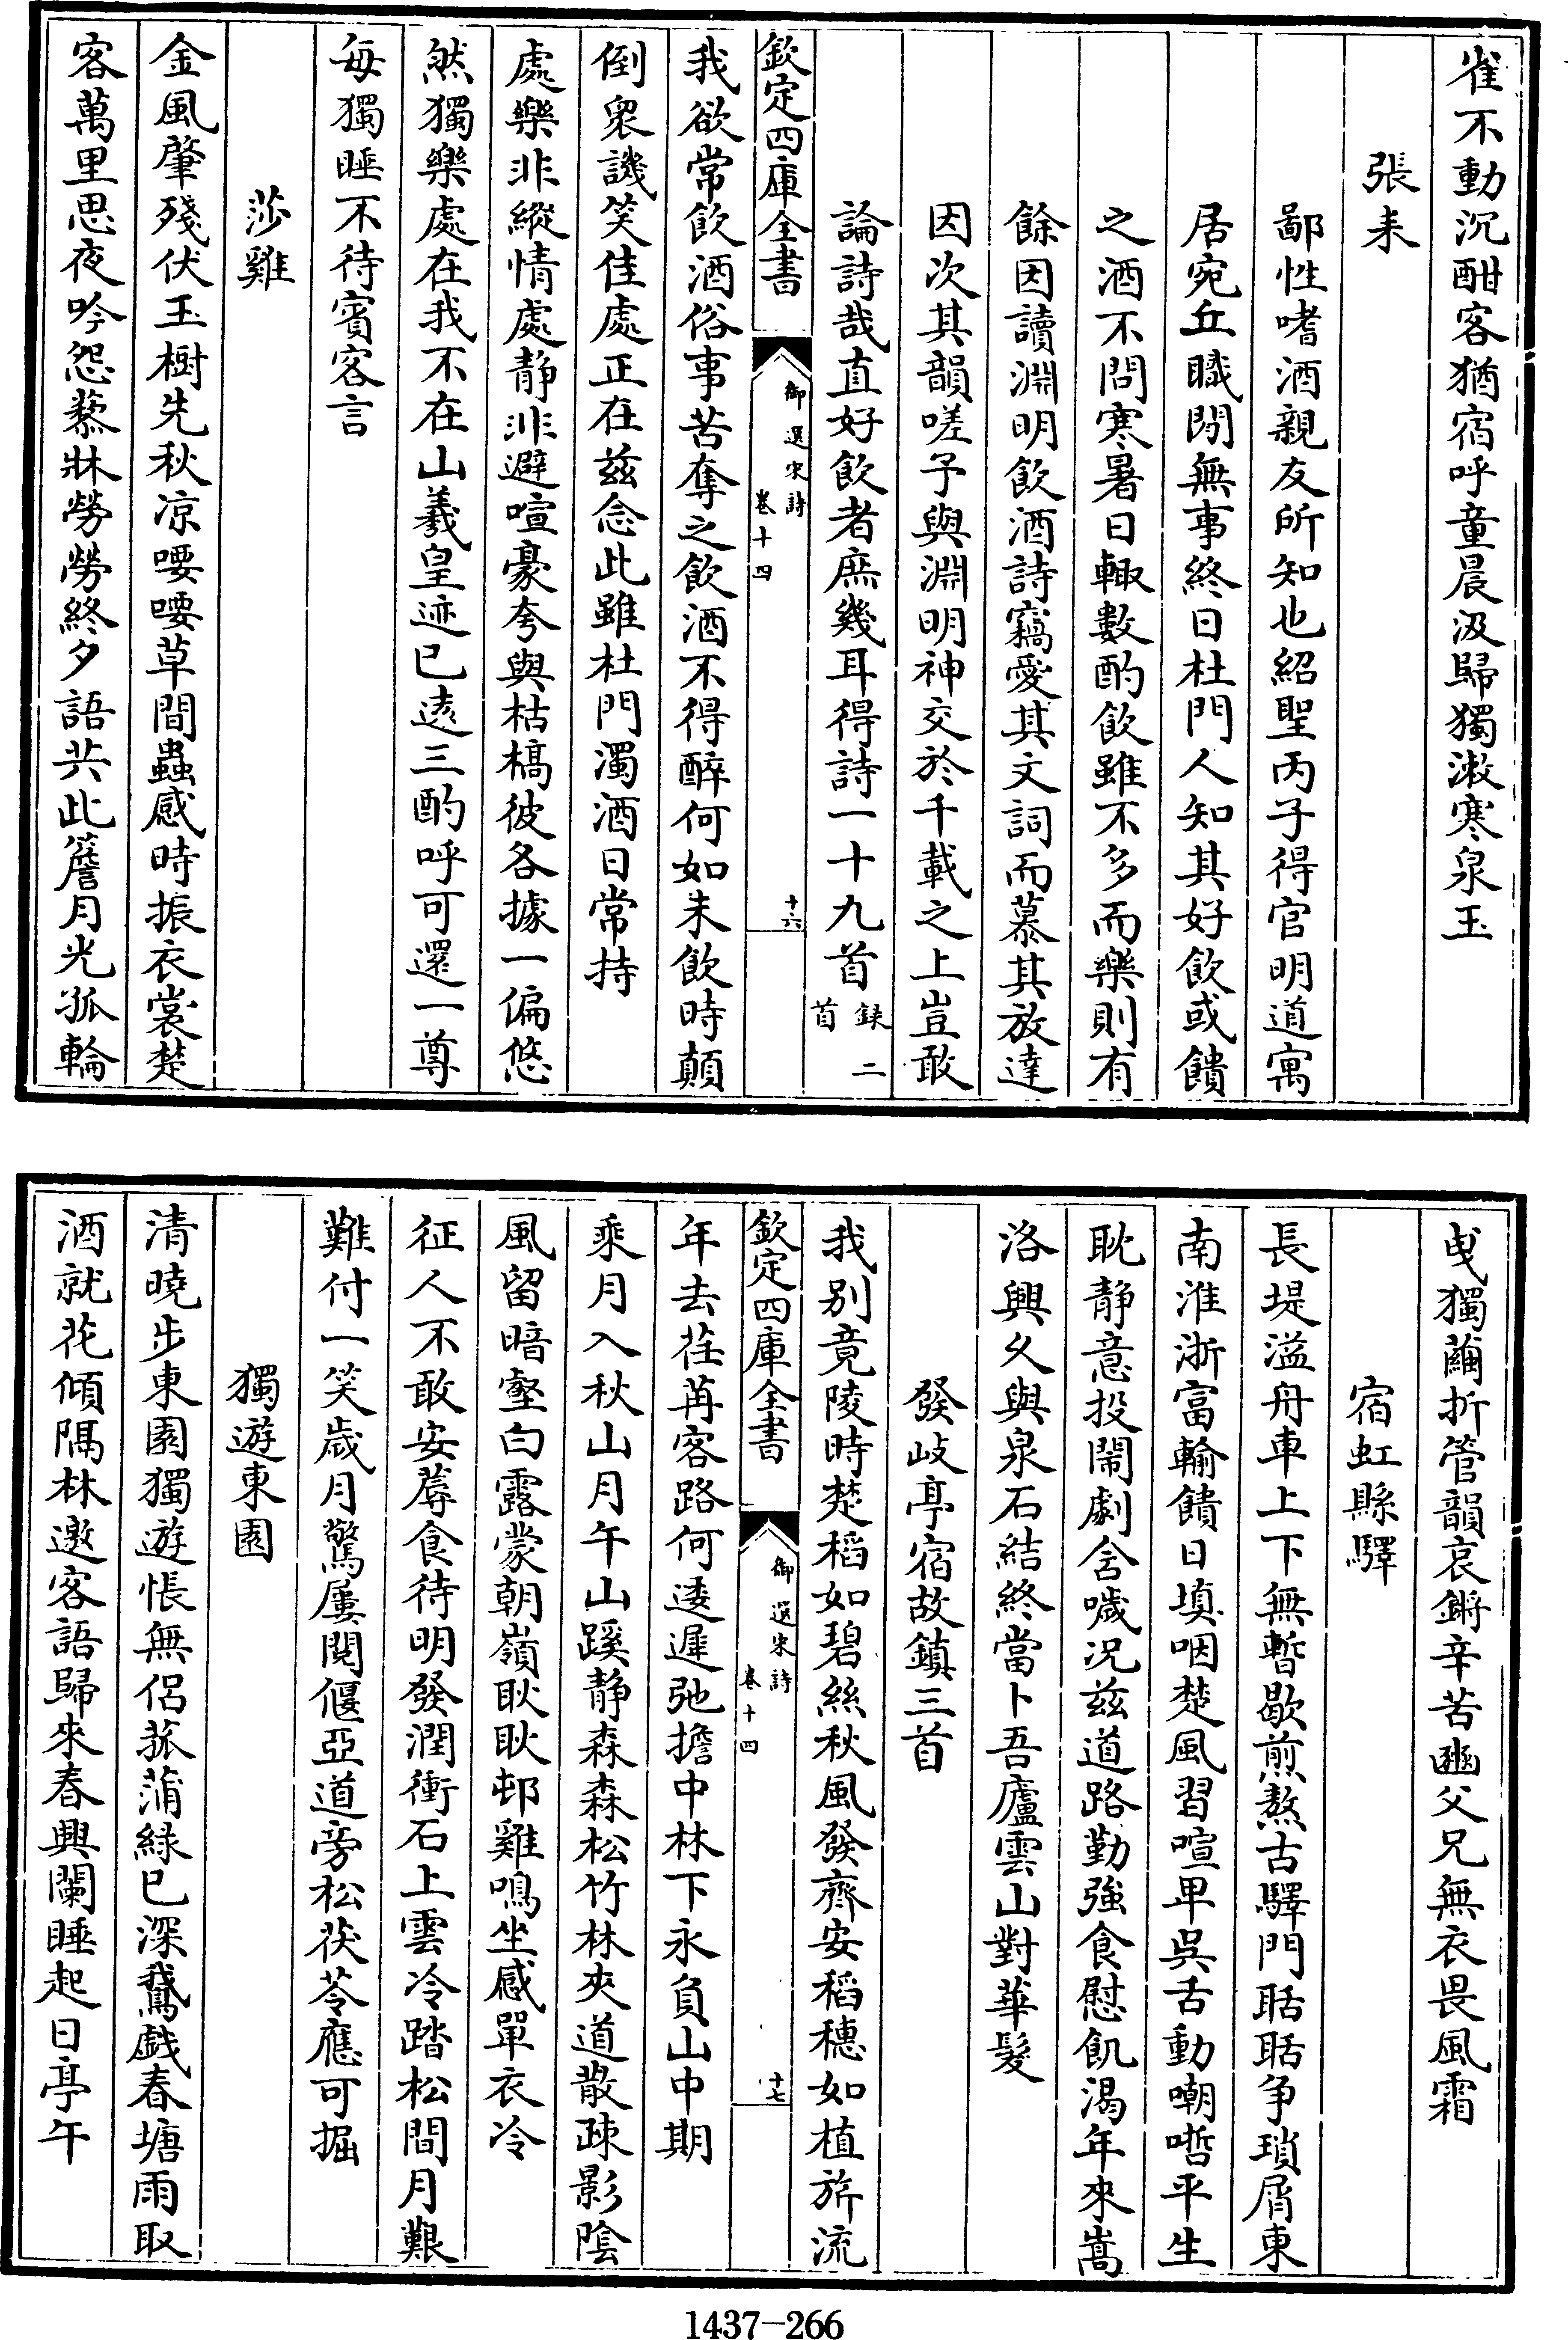 雀不動沉酣客猶宿呼童晨汲歸獨漱寒泉玉
張耒
鄙性嗜酒親友所知也紹聖丙子得官明道寓
居宛丘職閒無事終日杜門人知其好飲或饋
之酒不問寒暑日輙數酌飲雖不多而樂則有
餘因讀淵明飲酒詩竊愛其文詞而慕其放達
因次其韻嗟予與淵明神交於千載之上豈敢
論詩哉直好飲者庶幾耳得詩一十九首錄二首
欽定四庫全書
御選宋詩
卷十四
十六
我欲常飲酒俗事苦奪之飲酒不得醉何如未飲時顛
倒衆譏笑佳處正在兹念此雖杜門濁酒日常持
處樂非縱情處静非避喧豪夸與枯槁彼各據一偏悠
然獨樂處在我不在山羲皇迹已遠三酌呼可還一尊
每獨睡不待賓客言
莎雞
金風肇殘伏玉樹先秋凉喓喓草間蟲感時振衣裳楚
客萬里思夜吟怨藜牀勞勞終夕語共此簷月光孤輪
曳獨繭折管韻哀鏘辛苦豳父兄無衣畏風霜
宿虹縣驛
長堤溢舟車上下無暫歇煎熬古驛門聒聒争瑣屑東
南淮浙富輸饋日填咽楚風習喧卑吳舌動嘲哳平生
耽静意投鬧劇含噦况兹道路勤強食慰飢渴年來嵩
洛興久與泉石結終當卜吾廬雲山對華髮
發岐亭宿故鎮三首
我别竟陵時楚稻如碧絲秋風發齊安稻穗如植旂流
欽定四庫全書
御選宋詩
卷十四
十七
年去荏苒客路何逶遲弛擔中林下永負山中期
乘月入秋山月午山蹊静森森松竹林夾道散疎影陰
風留暗壑白露蒙朝嶺耿耿邨雞鳴坐感單衣冷
征人不敢安蓐食待明發潤衝石上雲冷踏松間月艱
難付一笑歲月驚屢閱偃亞道旁松茯苓應可掘
獨遊東園
清曉步東園獨遊悵無侣菰蒲緑已深鵞戯春塘雨取
酒就花傾隅林邀客語歸來春興闌睡起日亭午
1437-266